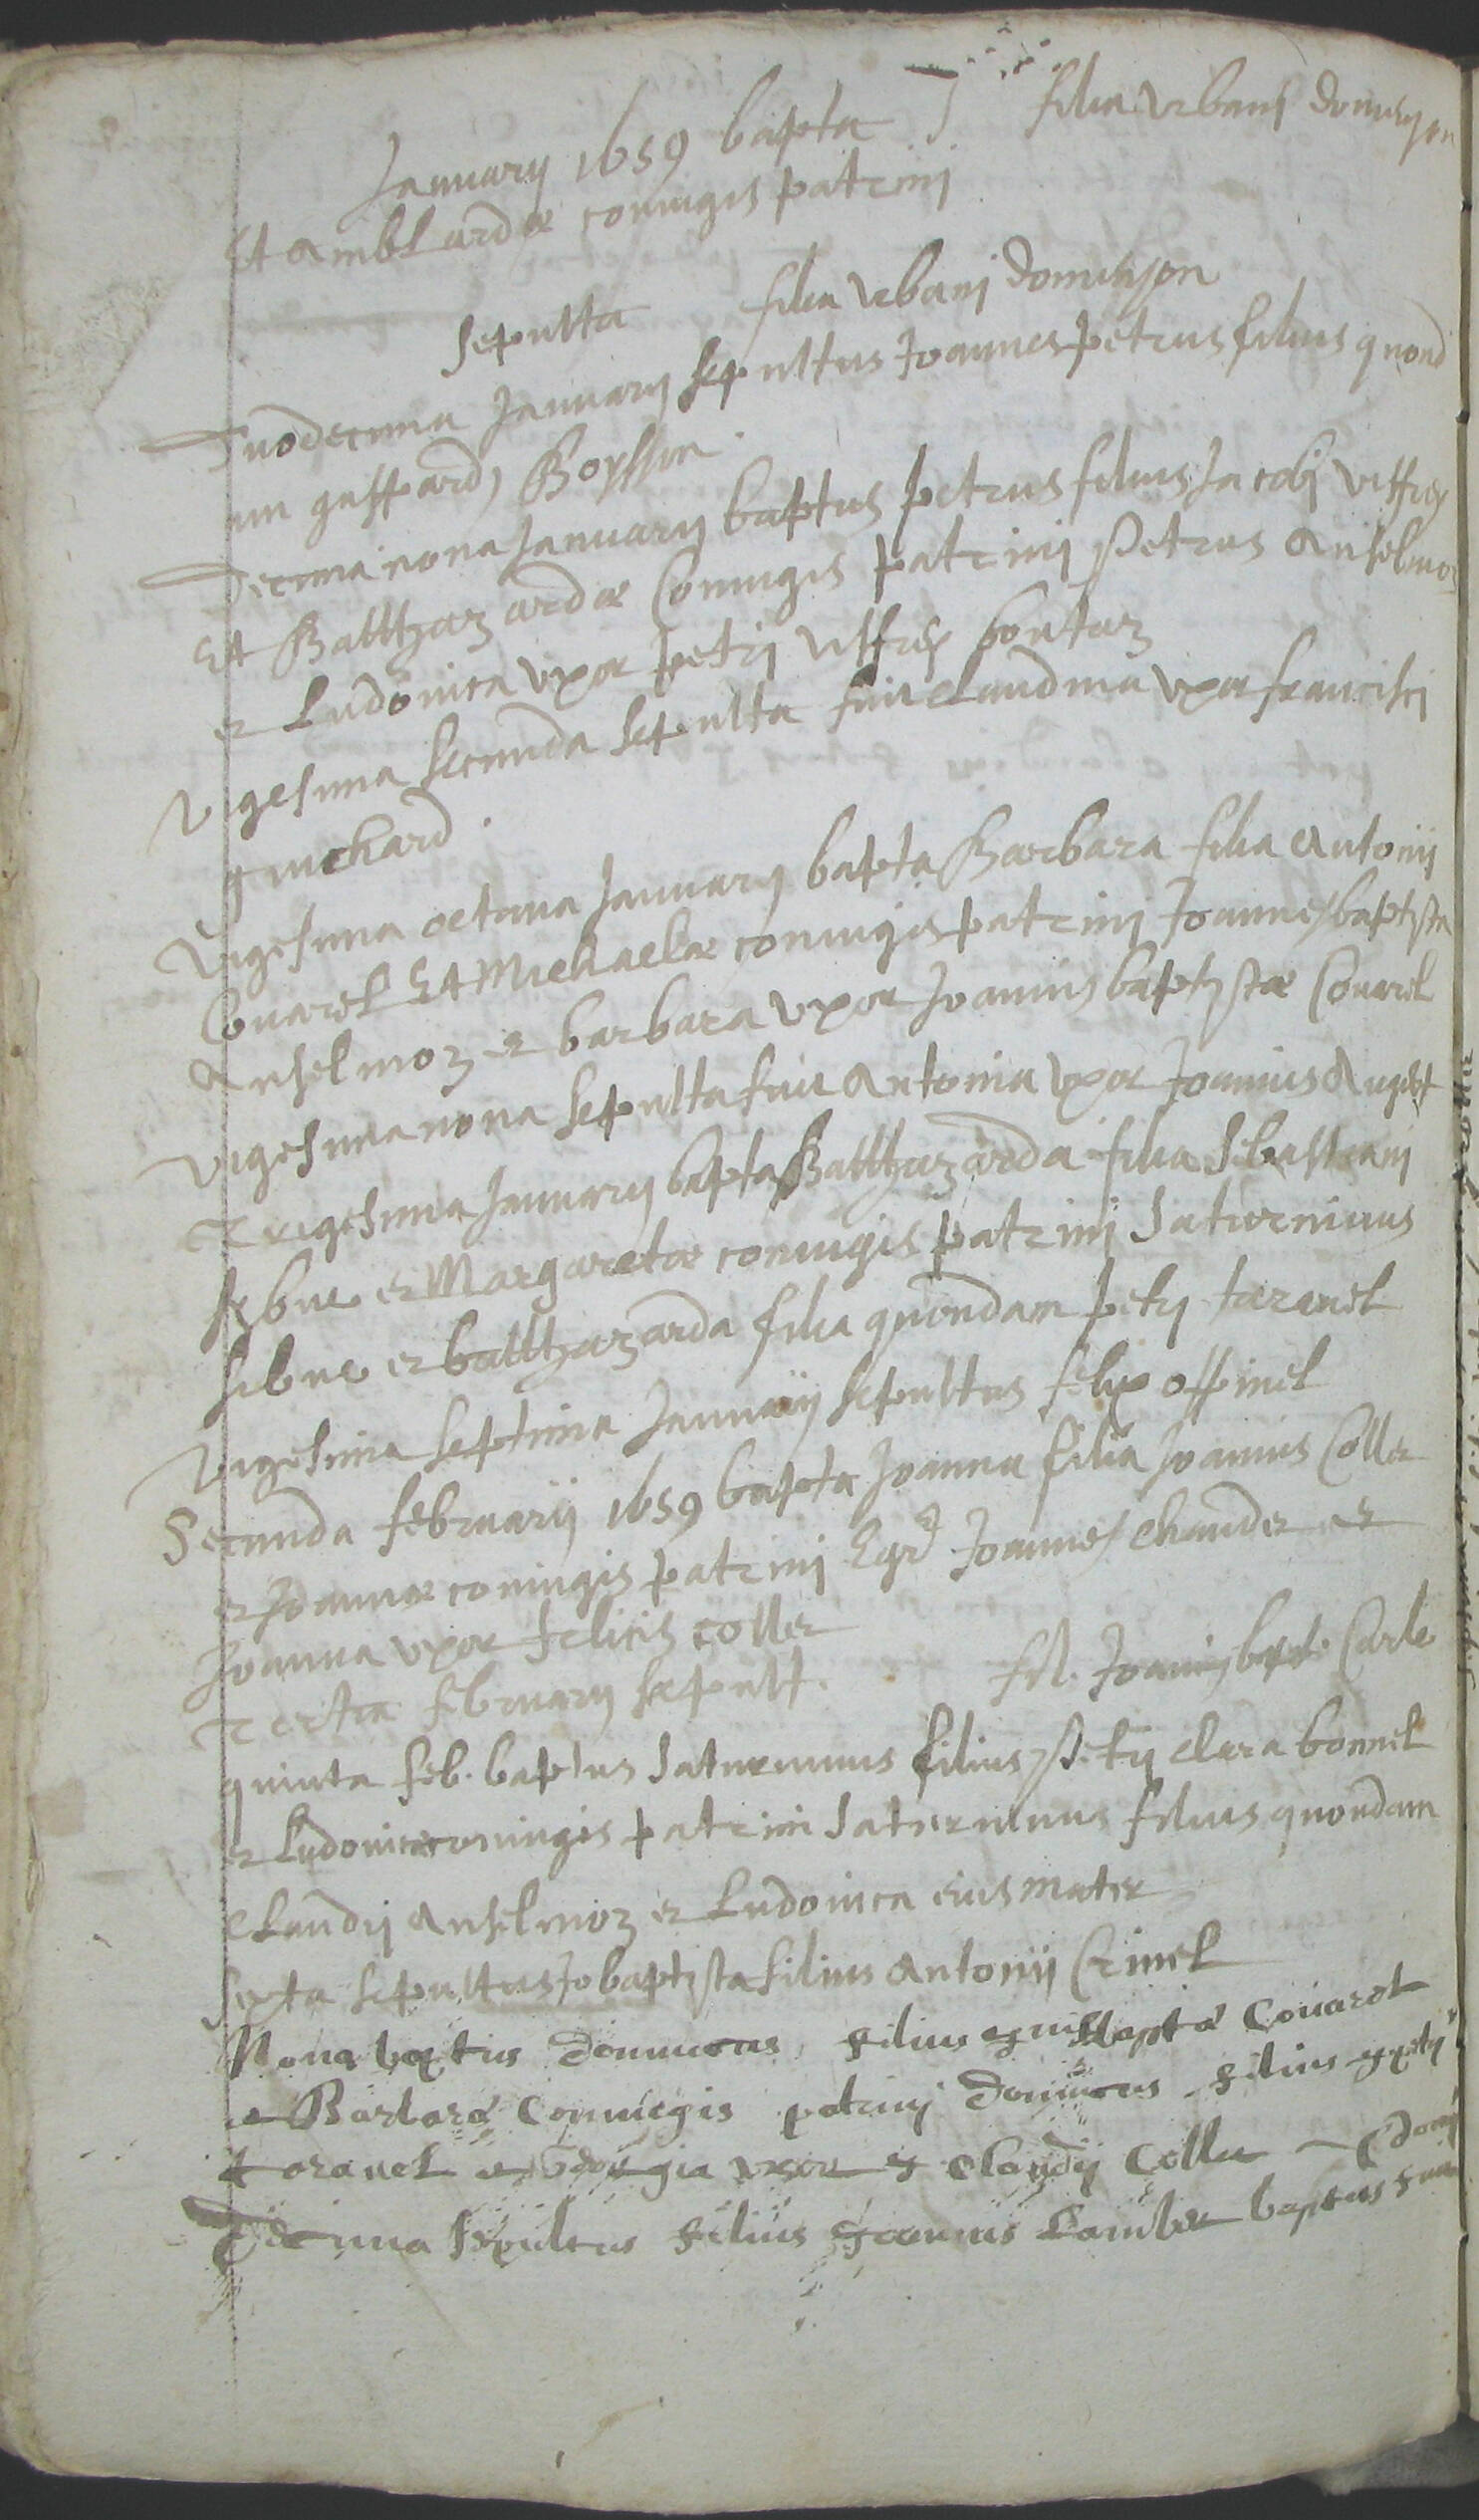 Januarij 1659 bapta filia Urbani Domenjon
Et Amblardæ coniugis patrinj
sepulta filia Urbanj Domenjon
Duodecima Januarij sepultus Joannes petrus filius quond
am gaspardj Boysson
Decima nona Januarij baptus petrus filius Jacobj Uffrey
Et Balthazardæ Coniugis patrinij Petrus Anselmoz
et Ludovica uxor petrj Uffrey
Vigesima secunda sepulta fuit claudina uxor francisci
guichard
Vigesima octava Januarij bapta Barbara filia Antonij
Covarel Et Michaelæ coniugis patrinij Joannes baptista
Anselmoz et barbara uxor Joannis baptistæ Covarel
Vigesima nona sepulta fuit Antonia uxor Joannis
Trigesima Januarij bapta Balthazarda filia Sebastianj
et Margaretæ coniugis patrinij Saturninus
et balthazarda filia quondam petrj taravel
Vigesima septima Januarij sepultus felix offinel
Secunda februarij 1659 bapta Joanna filia Joannis Collet
et Joannæ coniugis patrinij Egrd Joannes chaudet et
Joanna uxor felicis collet
Tertia februarij sepult. fil. Joannis bapt. Carle
quinta feb. baptus Saturninus filius Petrj clera bonnel
et Ludovicæ coniugis patrinij Saturninus filius quondam
Claudij Anselmoz et Ludovica eius mater
Sexta sepultus Jo baptista filius Antonij Crinel
Nona baptus Dominicus filius baptæ Covarel
et Barbaræ Coniugis patrinj Dominicus filius petrj
taravel et Georgia uxor Claudij Collet
Decima sepultus filius Joannis Lambert baptus